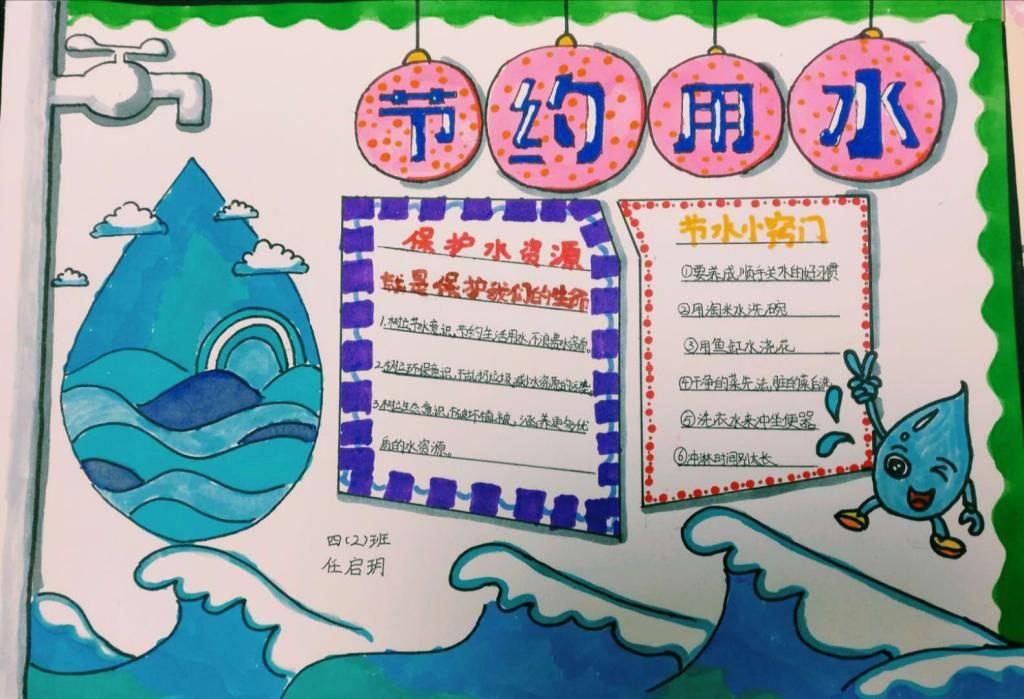 节约用水
保护水资源
就是保护我们的生命
1.树立节水意识,节约生活用水,不浪费水资源。
2.树立环保意识,不乱扔垃圾,减少水资源的污染
3.树立生态意识,不破坏植被,涵养更多优
质的水资源。
节水小窍门
①要养成顺手关水的好习惯
②用淘米水洗碗
③用鱼缸水浇花
④干净的菜先洗,脏的菜后洗
⑤洗衣水来冲坐便器
⑥冲淋时间别太长
四(2)班
任启玥